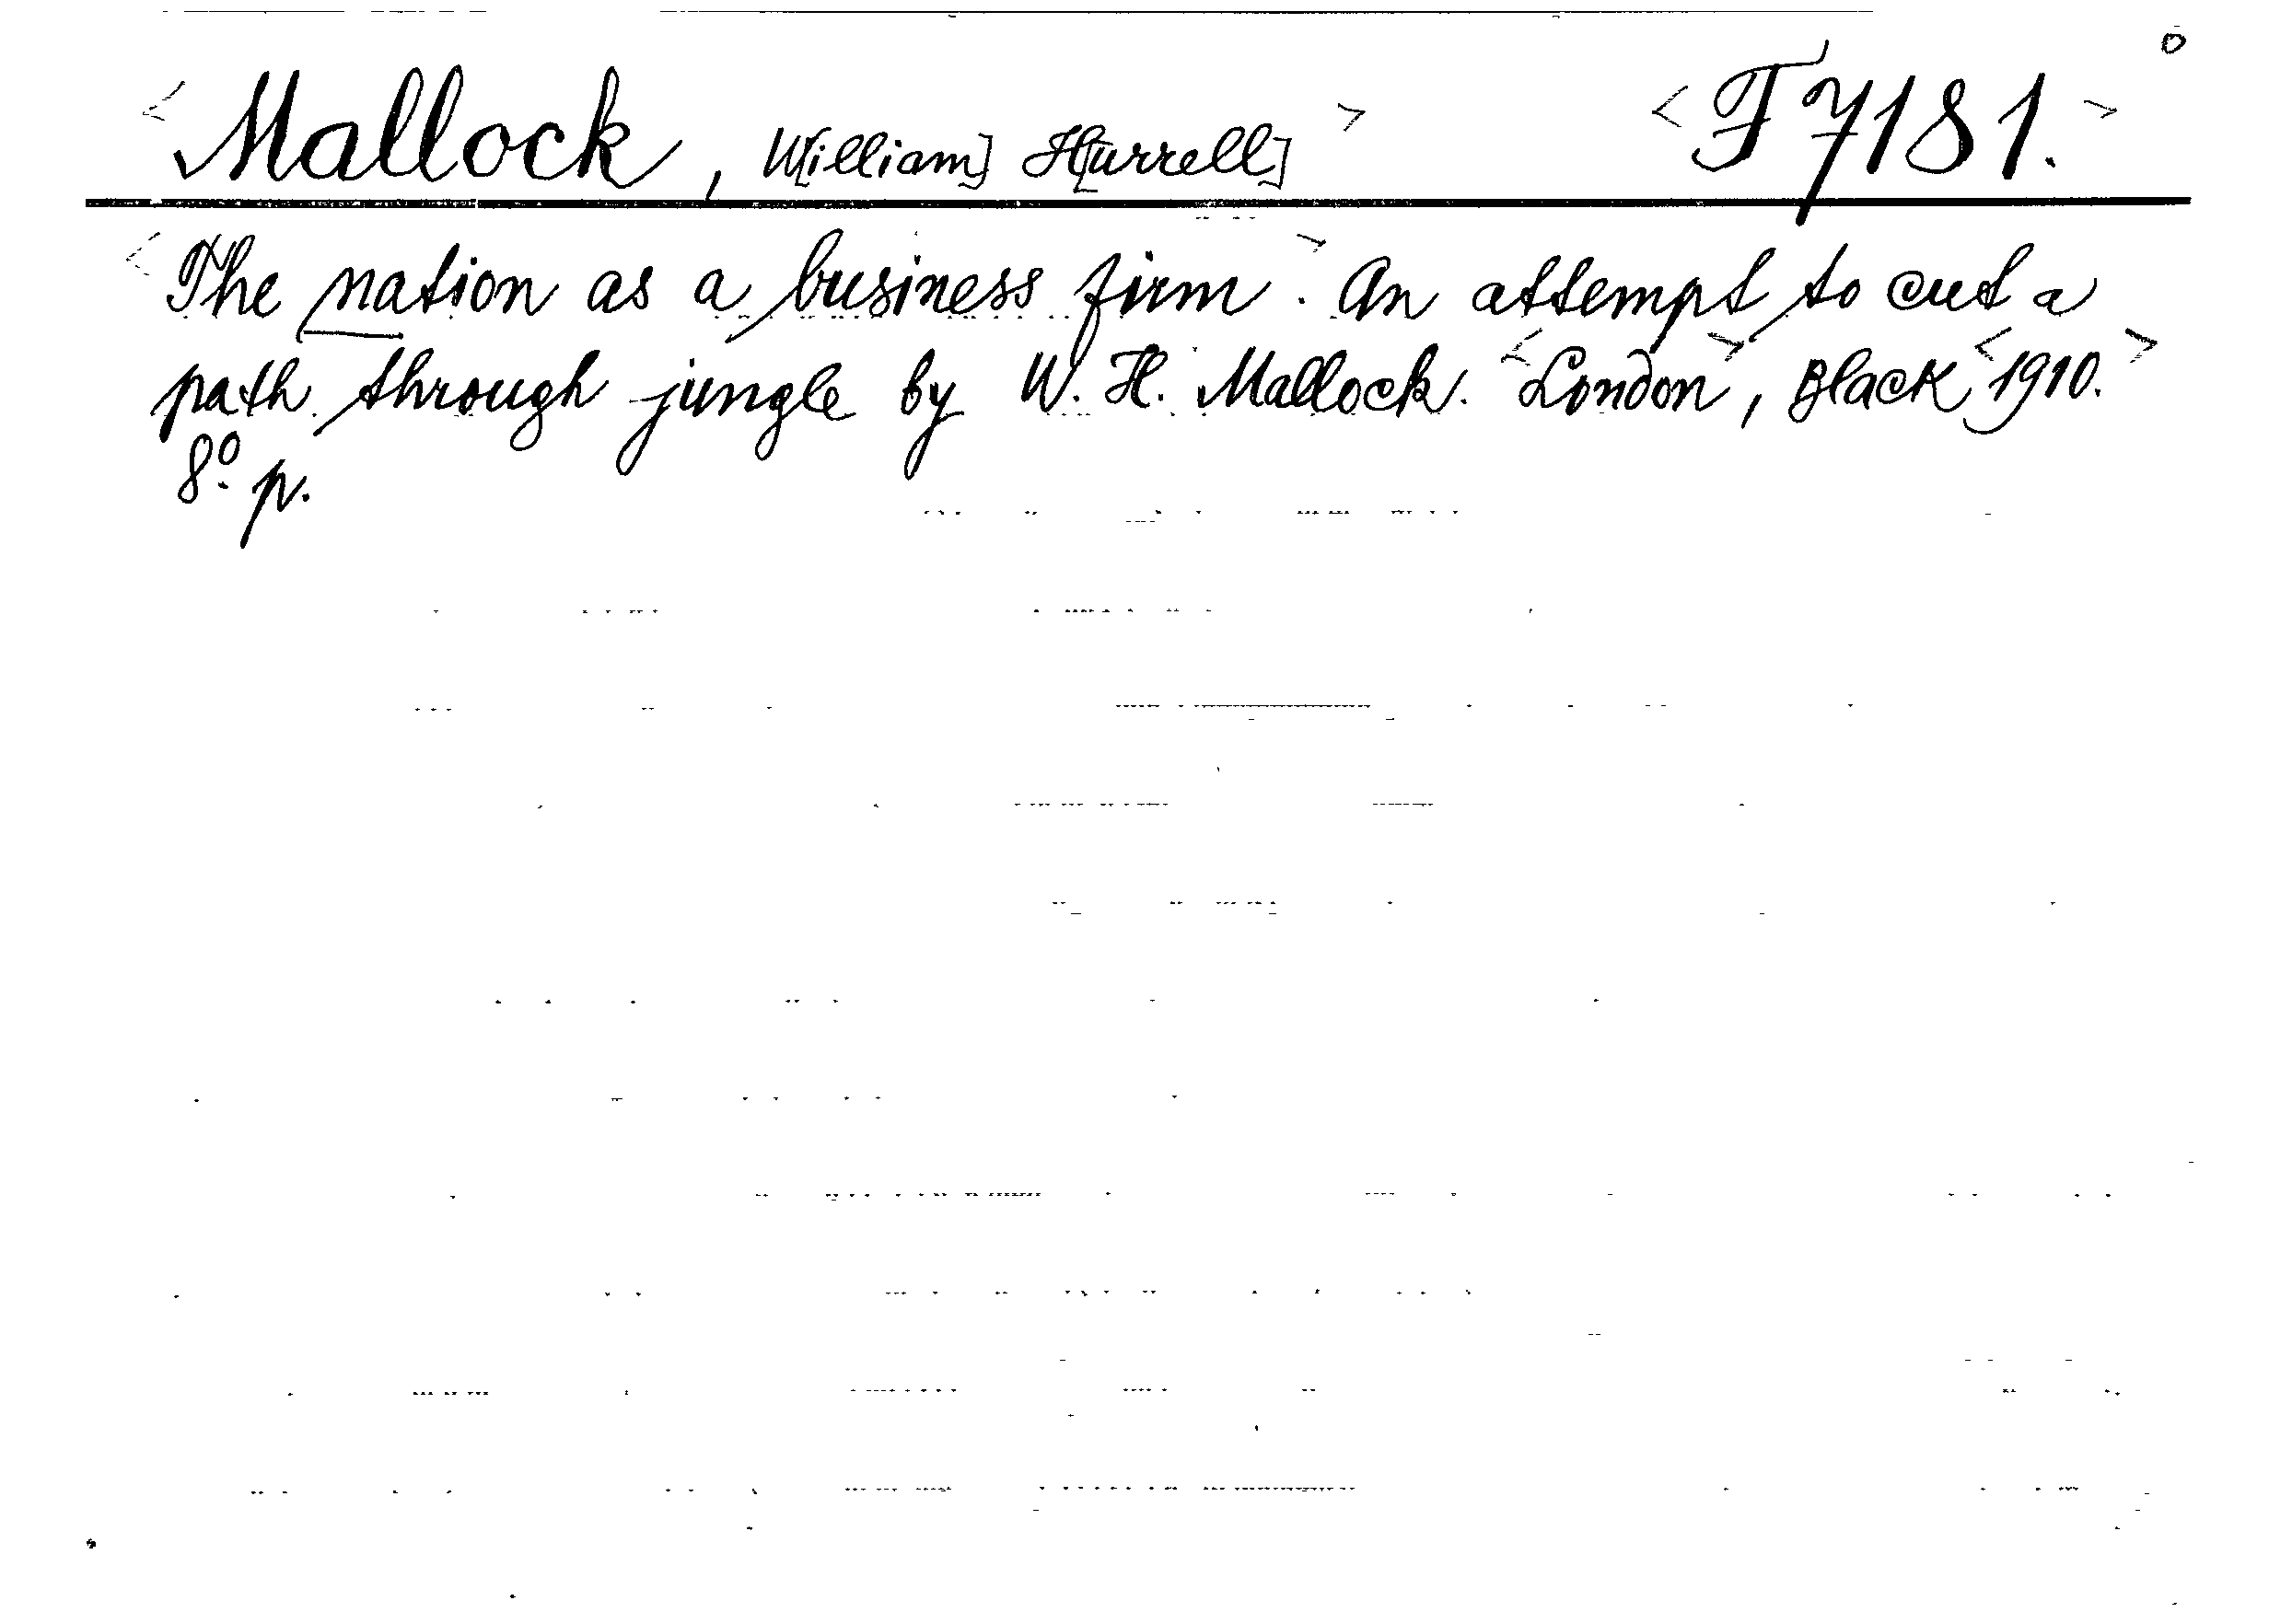 <Mallock, W[illiam] H[urrell]> <F7181.>
<The nation as a business firm>. An attempt to cut a
path through jungle by W. H. Mallock. <London>, Black <1910.>
8º p.